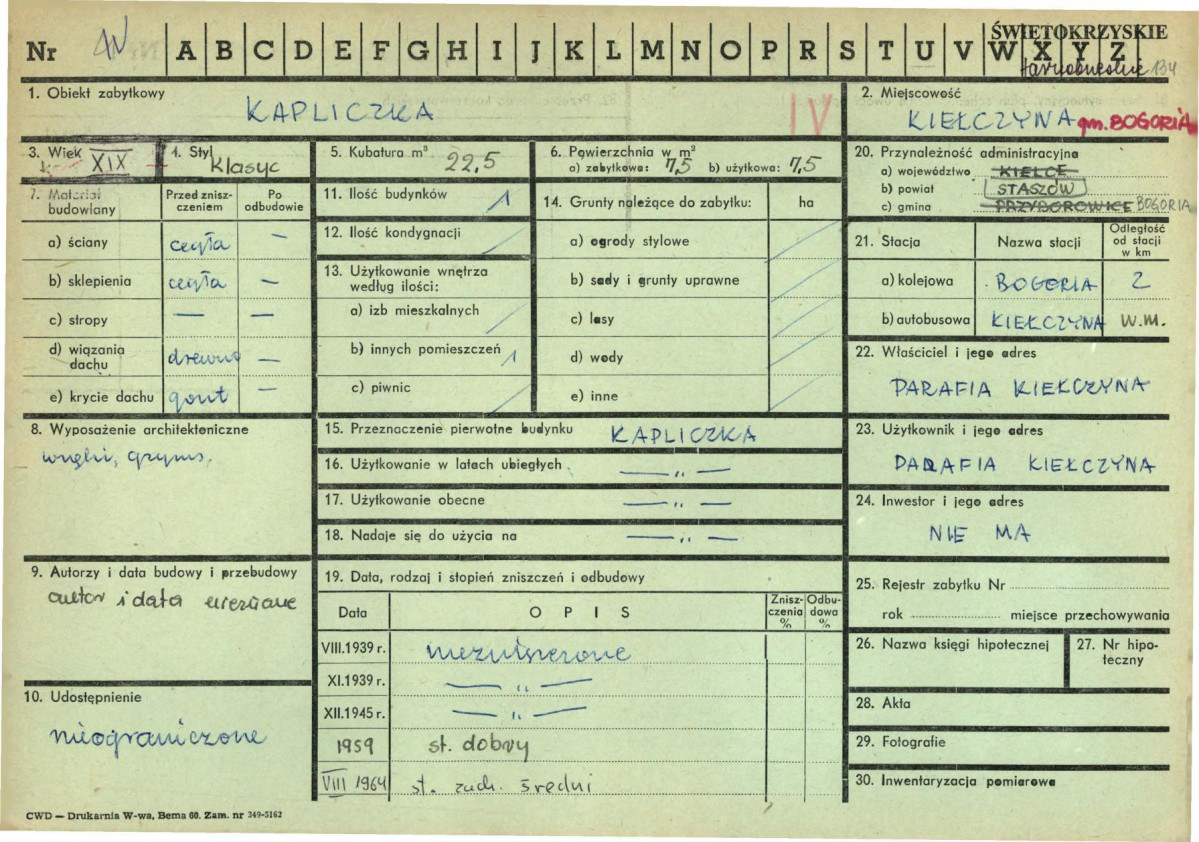 ŚWIĘTOKRZYSKIE
Nr A B C D E F G H I J K L M N O P R S T U V W X Y Z
134
1. Obiekt zabytkowy
KAPLICZKA
IV
2. Miejscowość
KIEŁCZYNA gm. BOGORIA
3. Wiek XIX
4. Styl klasyc
5. Kubatura m³ 22,5
6. Powierzchnia w m²
a) zabytkowa: 7,5 b) użytkowa: 7,5
20. Przynależność administracyjna
a) województwo KIELCE
b) powiat STASZÓW
c) gmina PRZYBOROWICE BOGORIA
7. Materiał budowlany
Przed zniszczeniem
Po odbudowie
a) ściany cegła —
b) sklepienia cegła —
c) stropy — —
d) wiązania dachu drewno —
e) krycie dachu gont —
11. Ilość budynków 1
12. Ilość kondygnacji
13. Użytkowanie wnętrza według ilości:
a) izb mieszkalnych
b) innych pomieszczeń 1
c) piwnic
14. Grunty należące do zabytku: ha
a) ogrody stylowe
b) sady i grunty uprawne
c) lasy
d) wody
e) inne
21. Stacja
Nazwa stacji
Odległość od stacji w km
a) kolejowa BOGORIA 2
b) autobusowa KIEŁCZYNA W.M.
22. Właściciel i jego adres
PARAFIA KIEŁCZYNA
8. Wyposażenie architektoniczne
wnęki, gzyms,
15. Przeznaczenie pierwotne budynku KAPLICZKA
16. Użytkowanie w latach ubiegłych — „ —
17. Użytkowanie obecne — „ —
18. Nadaje się do użycia na — „ —
23. Użytkownik i jego adres
PARAFIA KIEŁCZYNA
24. Inwestor i jego adres
NIE MA
9. Autorzy i data budowy i przebudowy
autor i data nieznane
10. Udostępnienie
nieograniczone
19. Data, rodzaj i stopień zniszczeń i odbudowy
Data OPIS Zniszczenia % Odbudowa %
VIII.1939 r. niezniszczone
XI.1939 r. — „ —
XII.1945 r. — „ —
1959 st. dobry
VIII 1964 st. zach. średni
25. Rejestr zabytku Nr
rok miejsce przechowywania
26. Nazwa księgi hipotecznej
27. Nr hipoteczny
28. Akta
29. Fotografie
30. Inwentaryzacja pomiarowa
CWD — Drukarnia W-wa, Bema 60. Zam. nr 349-5162